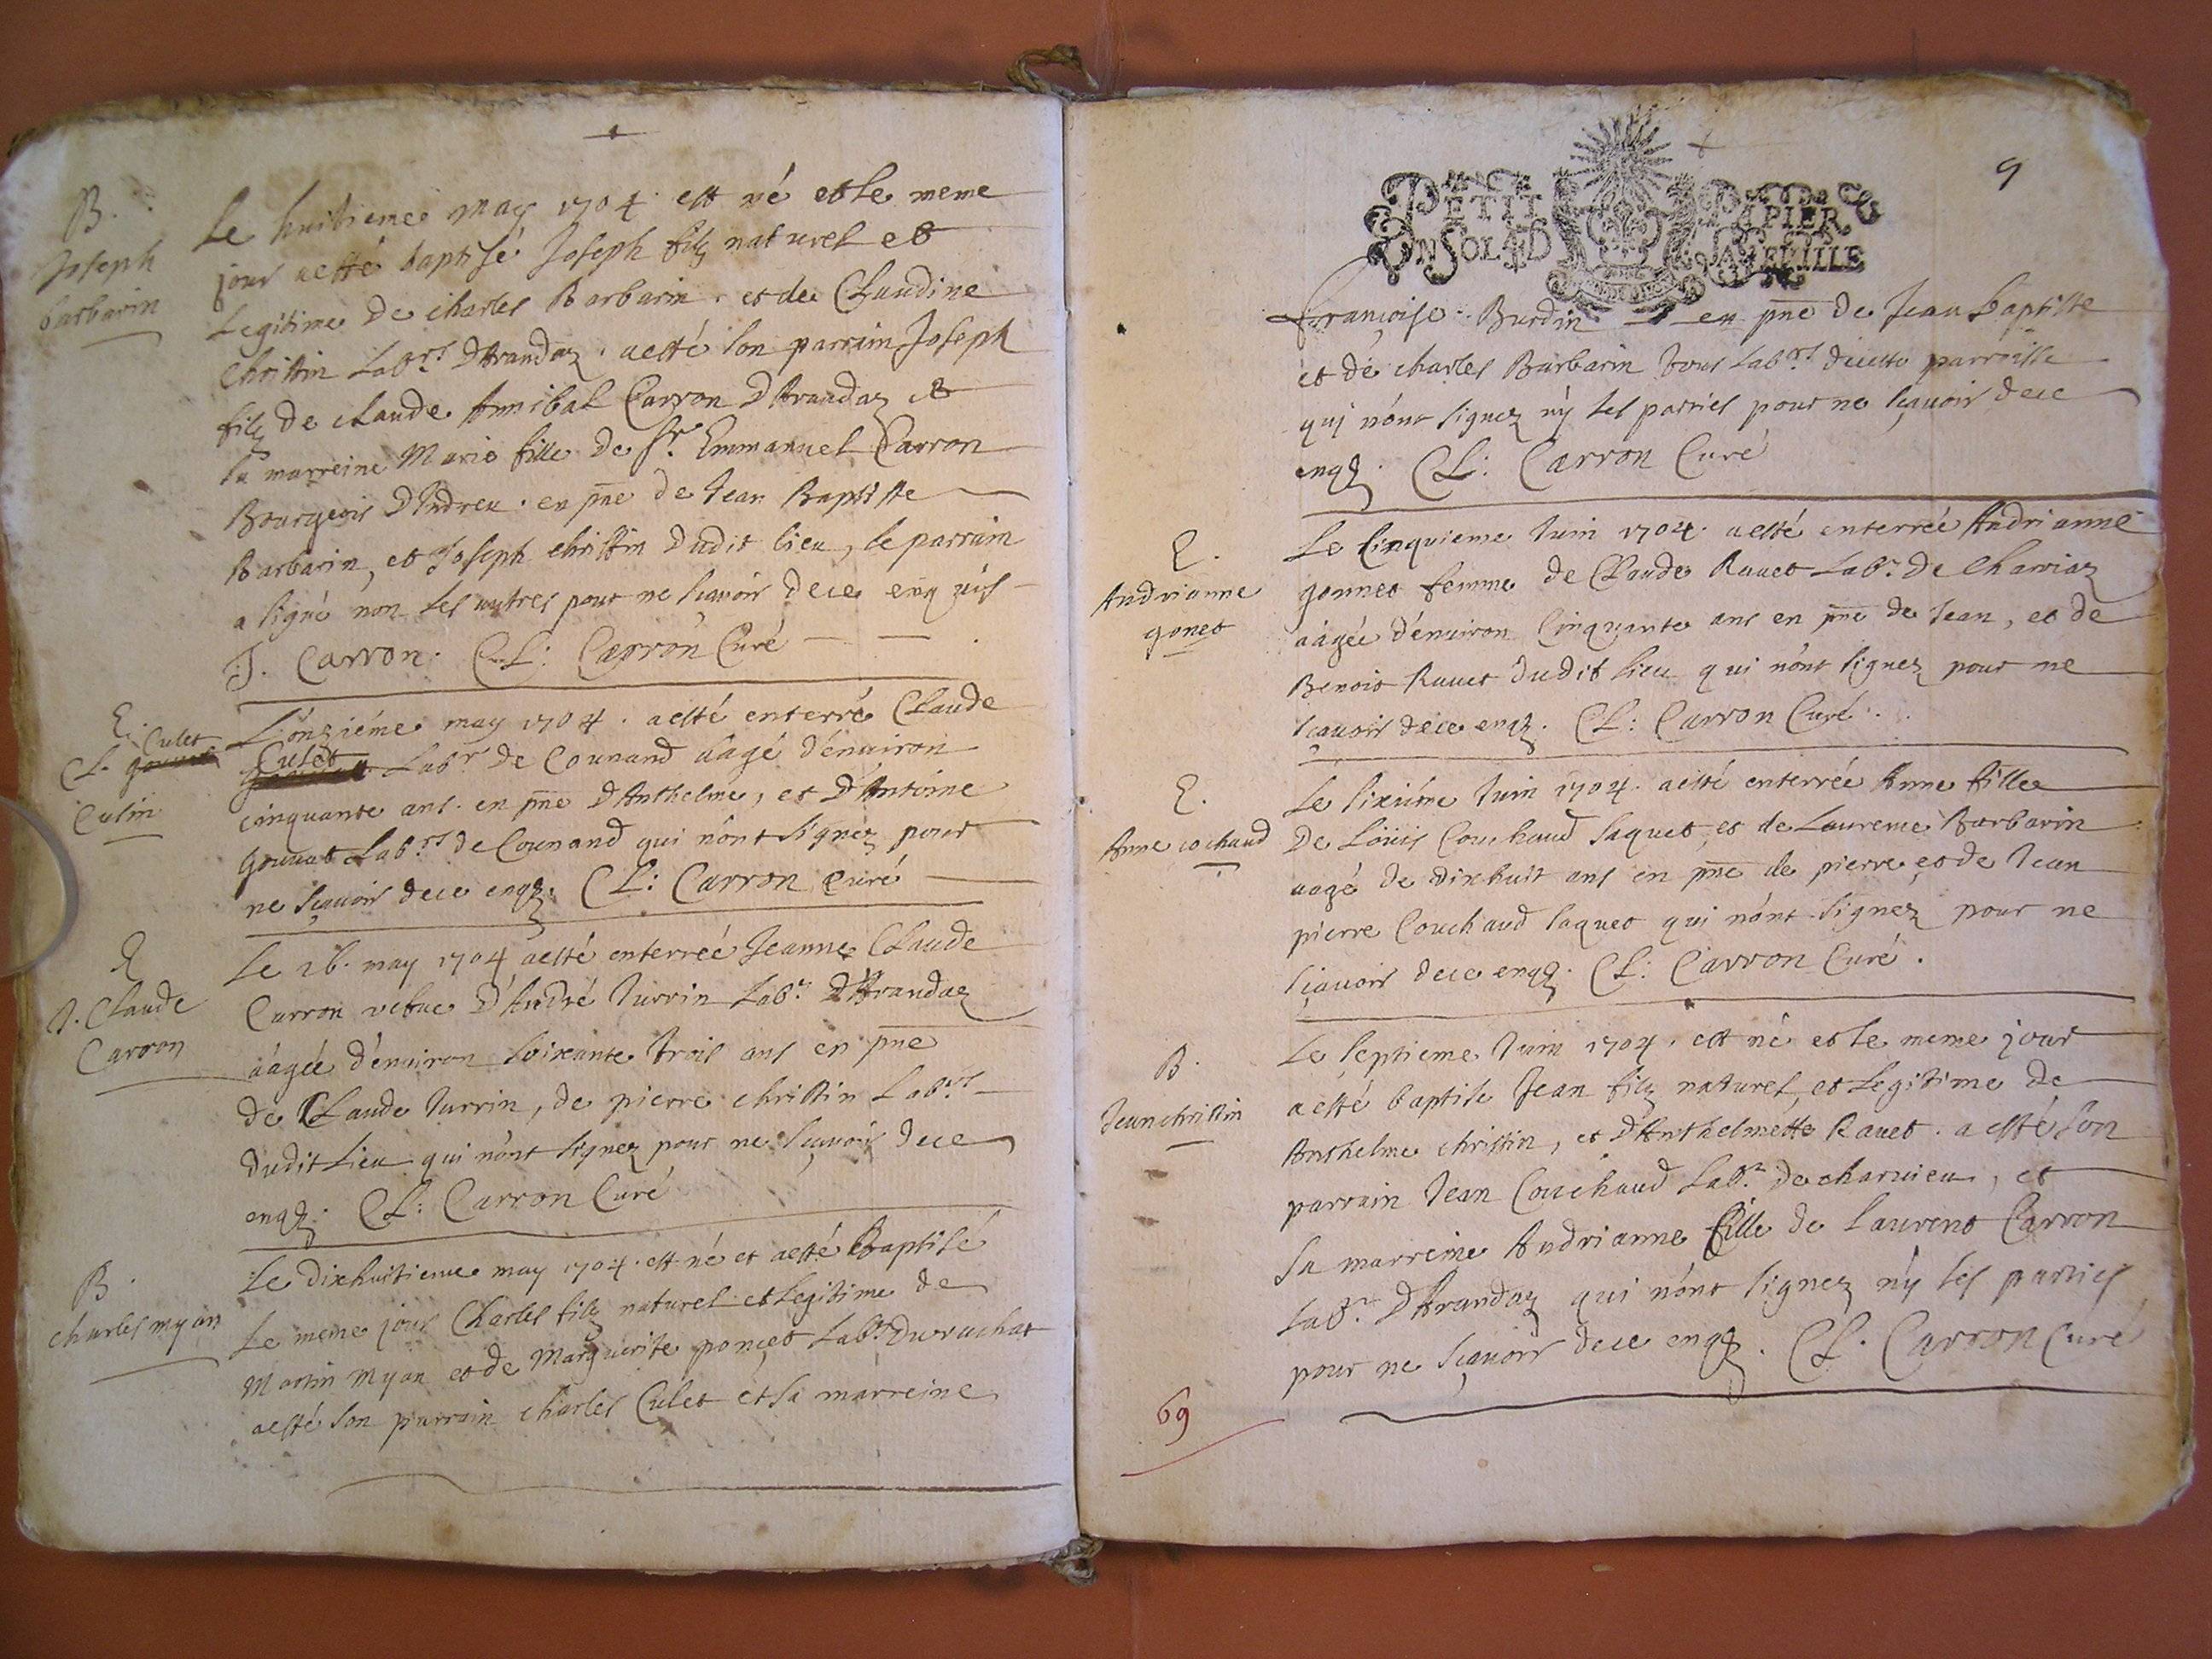 B.
Joseph
barbarin
Le huitieme may 1704 est né et le meme
jour a esté baptisé Joseph filz naturel et
Legitime de charles Barbarin et de Claudine
Christin Labrs. D'Arandaz. a esté son parrain Joseph
filz de claude Annibal Carron D'Arandaz et
sa marreine Marie fille de Sr. Emmanuel Carron
Bourgeois D'Indreu. en pñe de Jean Baptiste
Barbarin, et Joseph christin dudit lieu, le parrain
a signé non les autres pour ne sçavoir de ce enquis
J. Carron. CL: Carron Curé
E. Culet
CL.
Culin
L'onzième may 1704. a esté enterré Claude
Culet Labr. de Counand aagé d'enuiron
cinquante ans. en pñe D'Anthelme, et D'Antoine
Gouuat Labrs. de Counand qui n'ont signez pour
ne sçavoir de ce enqz. CL: Carron Curé
E
J. Claude
Carron
Le 16. may 1704 a esté enterreé Jeanne Claude
Carron vefue D'André Jurrin Labr. D'Arandaz
aàgée d'enuiron soixante trois ans en pñe
de Claude Jurrin, de pierre christin Labrs.
dudit Lieu qui n'ont signez pour ne sçavoir de ce
enqz. CL: Carron Curé
B.
charles myan
Le dixhuitieme may 1704. est né et a esté Baptisé
Le meme jour Charles filz naturel et Legitime de
Martin myan et de Marguerite poncet Labrs
a esté son parrain charles Culet et sa marreine
9
PETIT PAPIER
UN SOL LA FEUILLE
françoise Burdin en pñe de Jean baptiste
et de charles Barbarin tous Labrs. de cette parroisse
qui n'ont signez n'y les parties pour ne sçavoir de ce
enqz. CL: Carron Curé
E.
Andrianne
gonet
Le Cinquieme Juin 1704. a esté enterrée Andrianne
gonnet femme de Claude Rauet Labr. de Charviaz
aàgée d'enuiron Cinquante ans en pñe de Jean, et de
Benoit Rauet dudit lieu qui n'ont signez pour ne
sçavoir de ce enqz. CL: Carron Curé.
E.
Anne cochaud
Le sixiéme Juin 1704. a esté enterrée Anne fille
De Loüis Couchaud Jaquet, et de Laurence Barbarin
aagé de dixhuit ans en pñe de pierre et de Jean
pierre Couchaud Jaquet qui n'ont signez pour ne
sçavoir de ce enqz. CL: Carron Curé.
B.
Jean christin
Le septieme Juin 1704. est né et le meme jour
a esté baptisé Jean filz naturel, et Legitime de
Anthelme christin, et D'Anthelmette Rauet. a esté son
parrain Jean Couchaud Labr. de charuieu, et
sa marreine Andrianne fille de Laurent Carron
Labr. D'Arandaz qui n'ont signez n'y les parties
pour ne sçavoir de ce enqz. CL. Carron Curé
69